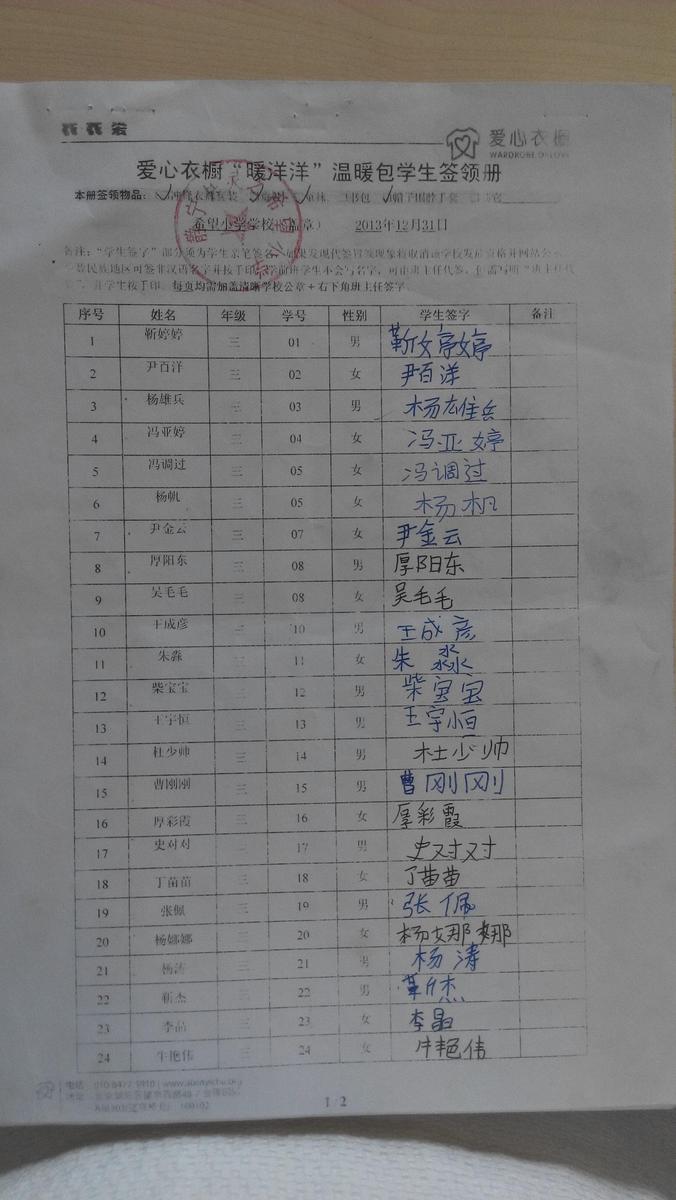 爱心衣橱
WARDROBE OF LOVE
爱心衣橱“暖洋洋”温暖包学生签领册
本册签领物品： 书包 帽子围脖手套
希望小学学校（盖章） 2013年12月31日
备注：“学生签字”部分须为学生亲笔签名，如果发现代签冒领现象将取消该学校发放资格并网站公示
少数民族地区可签非汉语名字并按手印，学前班学生不会写名字，可由班主任代签，但需写明“班主任代
签”，并学生按手印。每页均需加盖清晰学校公章+右下角班主任签字
序号 姓名 年级 学号 性别 学生签字 备注
1 靳婷婷 三 01 男 靳婷婷
2 尹百洋 三 02 女 尹百洋
3 杨雄兵 三 03 男 杨雄兵
4 冯亚婷 三 04 女 冯亚婷
5 冯调过 三 05 女 冯调过
6 杨帆 三 05 女 杨帆
7 尹金云 三 07 女 尹金云
8 厚阳东 三 08 男 厚阳东
9 吴毛毛 三 08 女 吴毛毛
10 王成彦 三 10 男 王成彦
11 朱淼 三 11 女 朱淼
12 柴宝宝 三 12 男 柴宝宝
13 王宇恒 三 13 男 王宇恒
14 杜少帅 三 14 男 杜少帅
15 曹刚刚 三 15 男 曹刚刚
16 厚彩霞 三 16 女 厚彩霞
17 史对对 三 17 男 史对对
18 丁苗苗 三 18 女 丁苗苗
19 张佩 三 19 男 张佩
20 杨娜娜 三 20 女 杨娜娜
21 杨涛 三 21 男 杨涛
22 靳杰 三 22 男 靳杰
23 李晶 三 23 女 李晶
24 牛艳伟 三 24 女 牛艳伟
电话
地址
100102
1/2